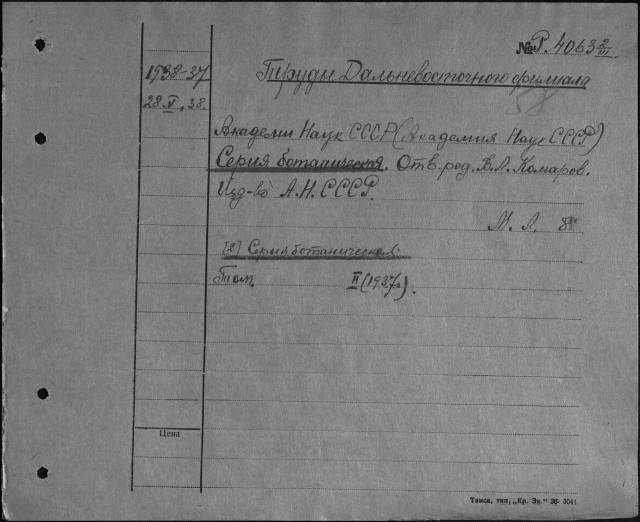 № Р. 4063 2/III
1938-37
Труды Дальневосточного филиала
28 V, 38.
58
Академии Наук СССР (Академия Наук СССР)
Серия ботаническая. Отв. ред. В.Л. Комаров.
Изд-во А.Н. СССР.
М. Л. 8°
[2] Серия ботаническая
Том II (1937г).
Цена
Томск, тип. „Кр. Зн.“ 36 3041